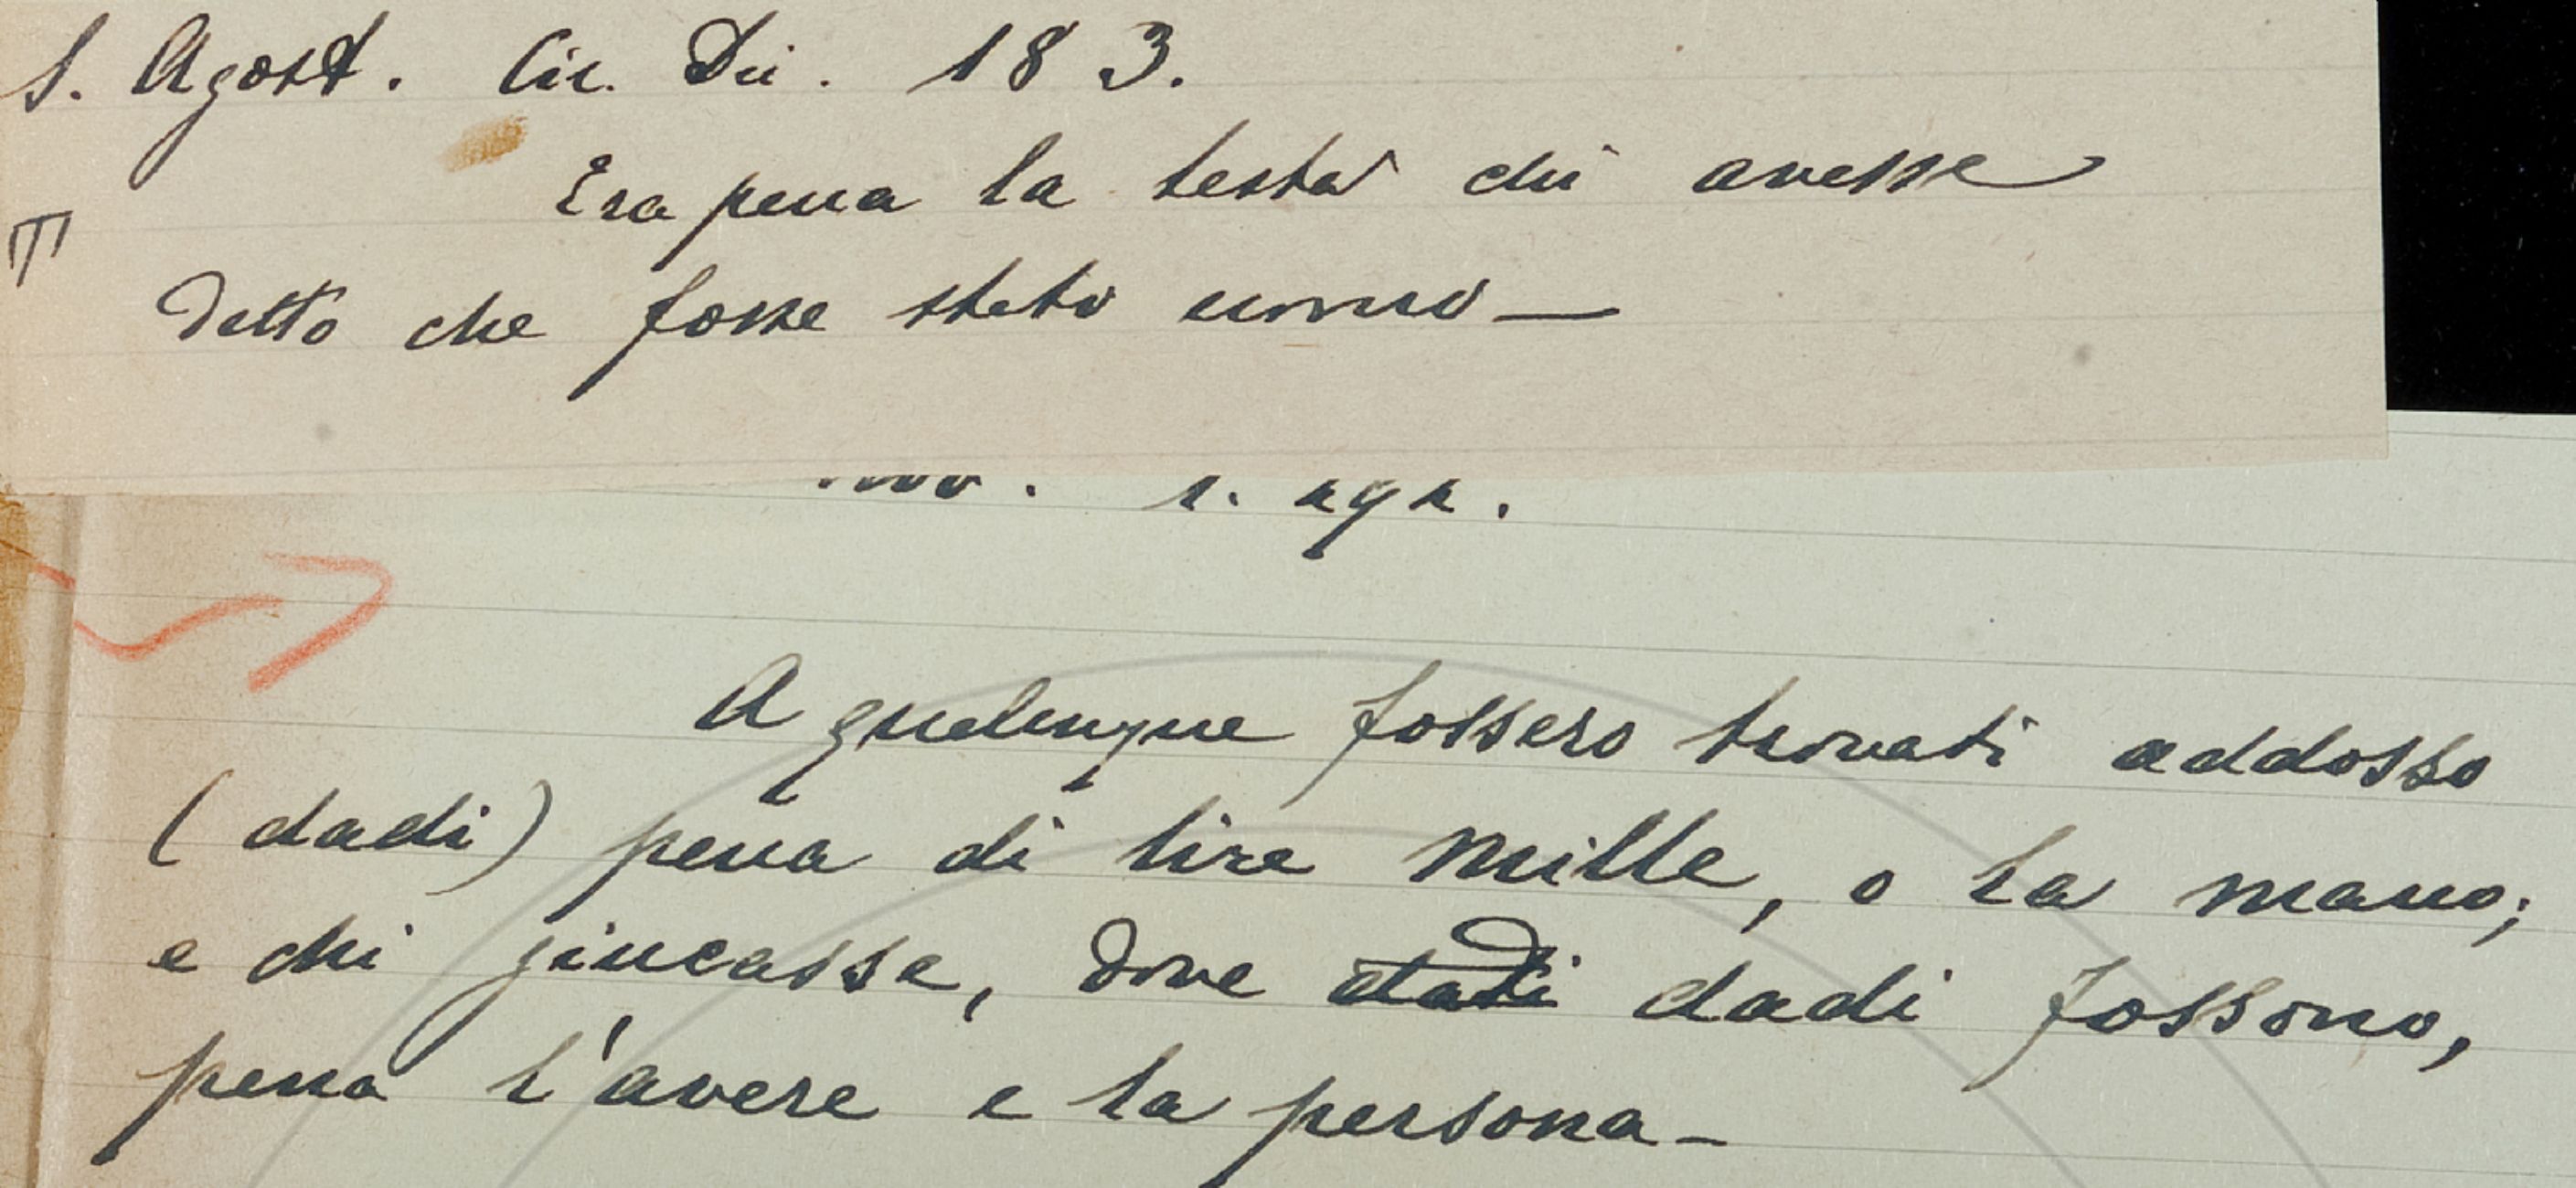 S. Agost. Cic. Dii. 18 3.
Era pena la testa chi avesse
detto che fosse stato uomo—
A qualunque fossero trovati addosso
(dadi) pena di lire mille, o la mano;
e chi giucasse, dove dadi fossono,
pena l'avere e la persona—